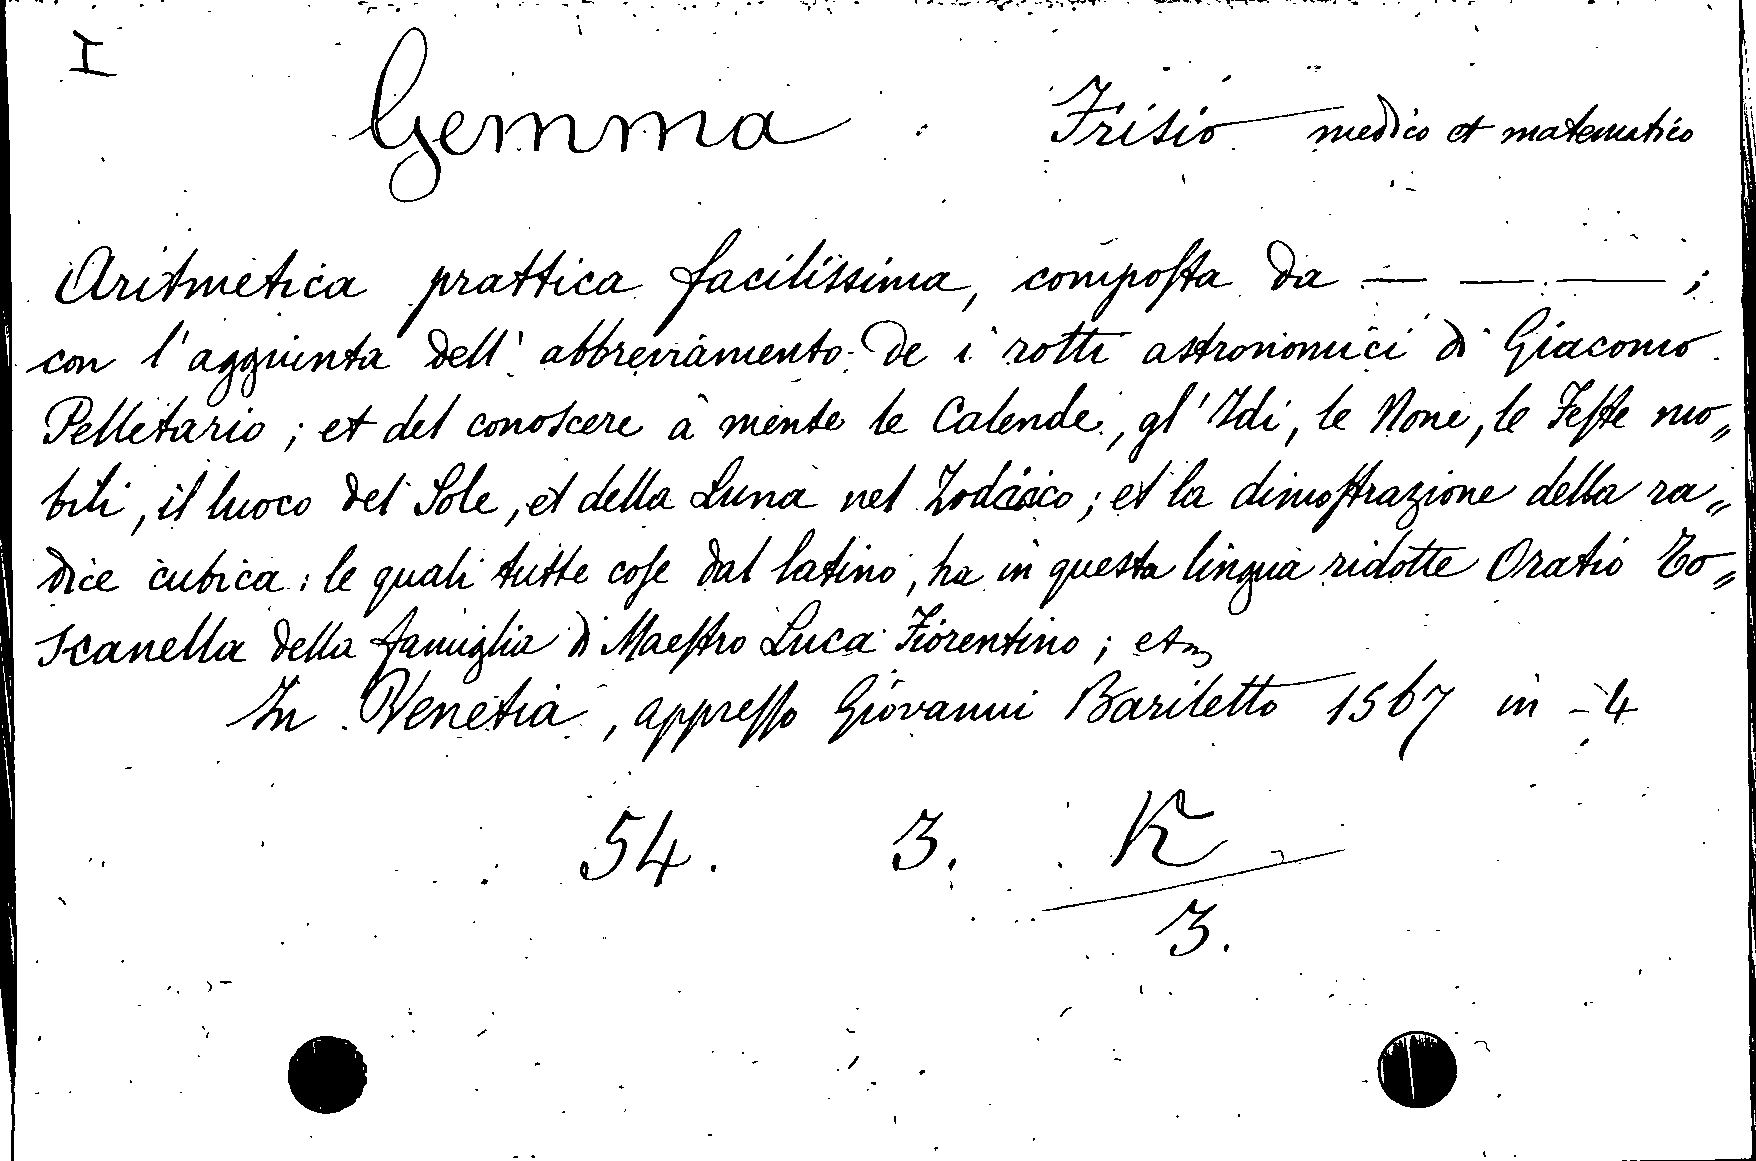 I
Gemma Frisio medico et matematico
Aritmetica prattica facilissima, composta da — — — ;
con l'aggiunta dell' abbreviamento de i rotti astronomici di Giacomo
Pelletario ; et del conoscere a mente le Calende, gl'Idi, le None, le Feste mo„
bili, il luoco del Sole, et della Luna nel Zodiaco ; et la dimostrazione della ra„
dice cubica : le quali tutte cose dal latino, ha in questa lingua ridotte Oratio To„
scanella della famiglia di Maestro Luca Fiorentino ; et
In Venetia, appresso Giovanni Bariletto 1567 in -4
54. 3. K
3.